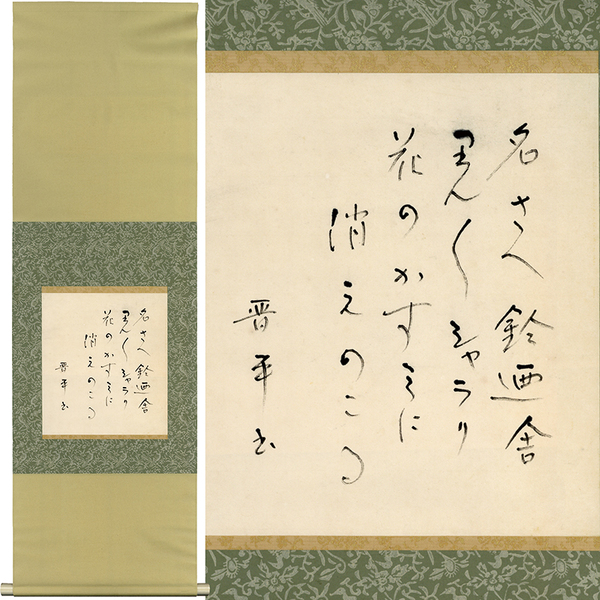 名さへ鈴廼舎
里ん〱シャラリ
花のかすみに
消えのこる
晋平書